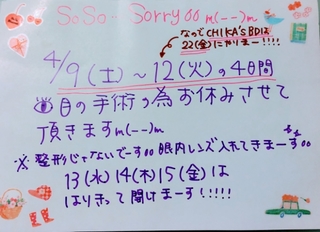 SoSo・・ Sorry○○ m(--)m
なのでCHIKA'S BDは
22(金)にやりまー!!!!
4/9(土)～12(火)の4日間
目の手術の為お休みさせて
頂きますm(--)m
※整形じゃないでーす○○ 眼内レンズ入れてきまーす○○
13(水)14(木)15(金)は
はりきって開けまーす!!!!!